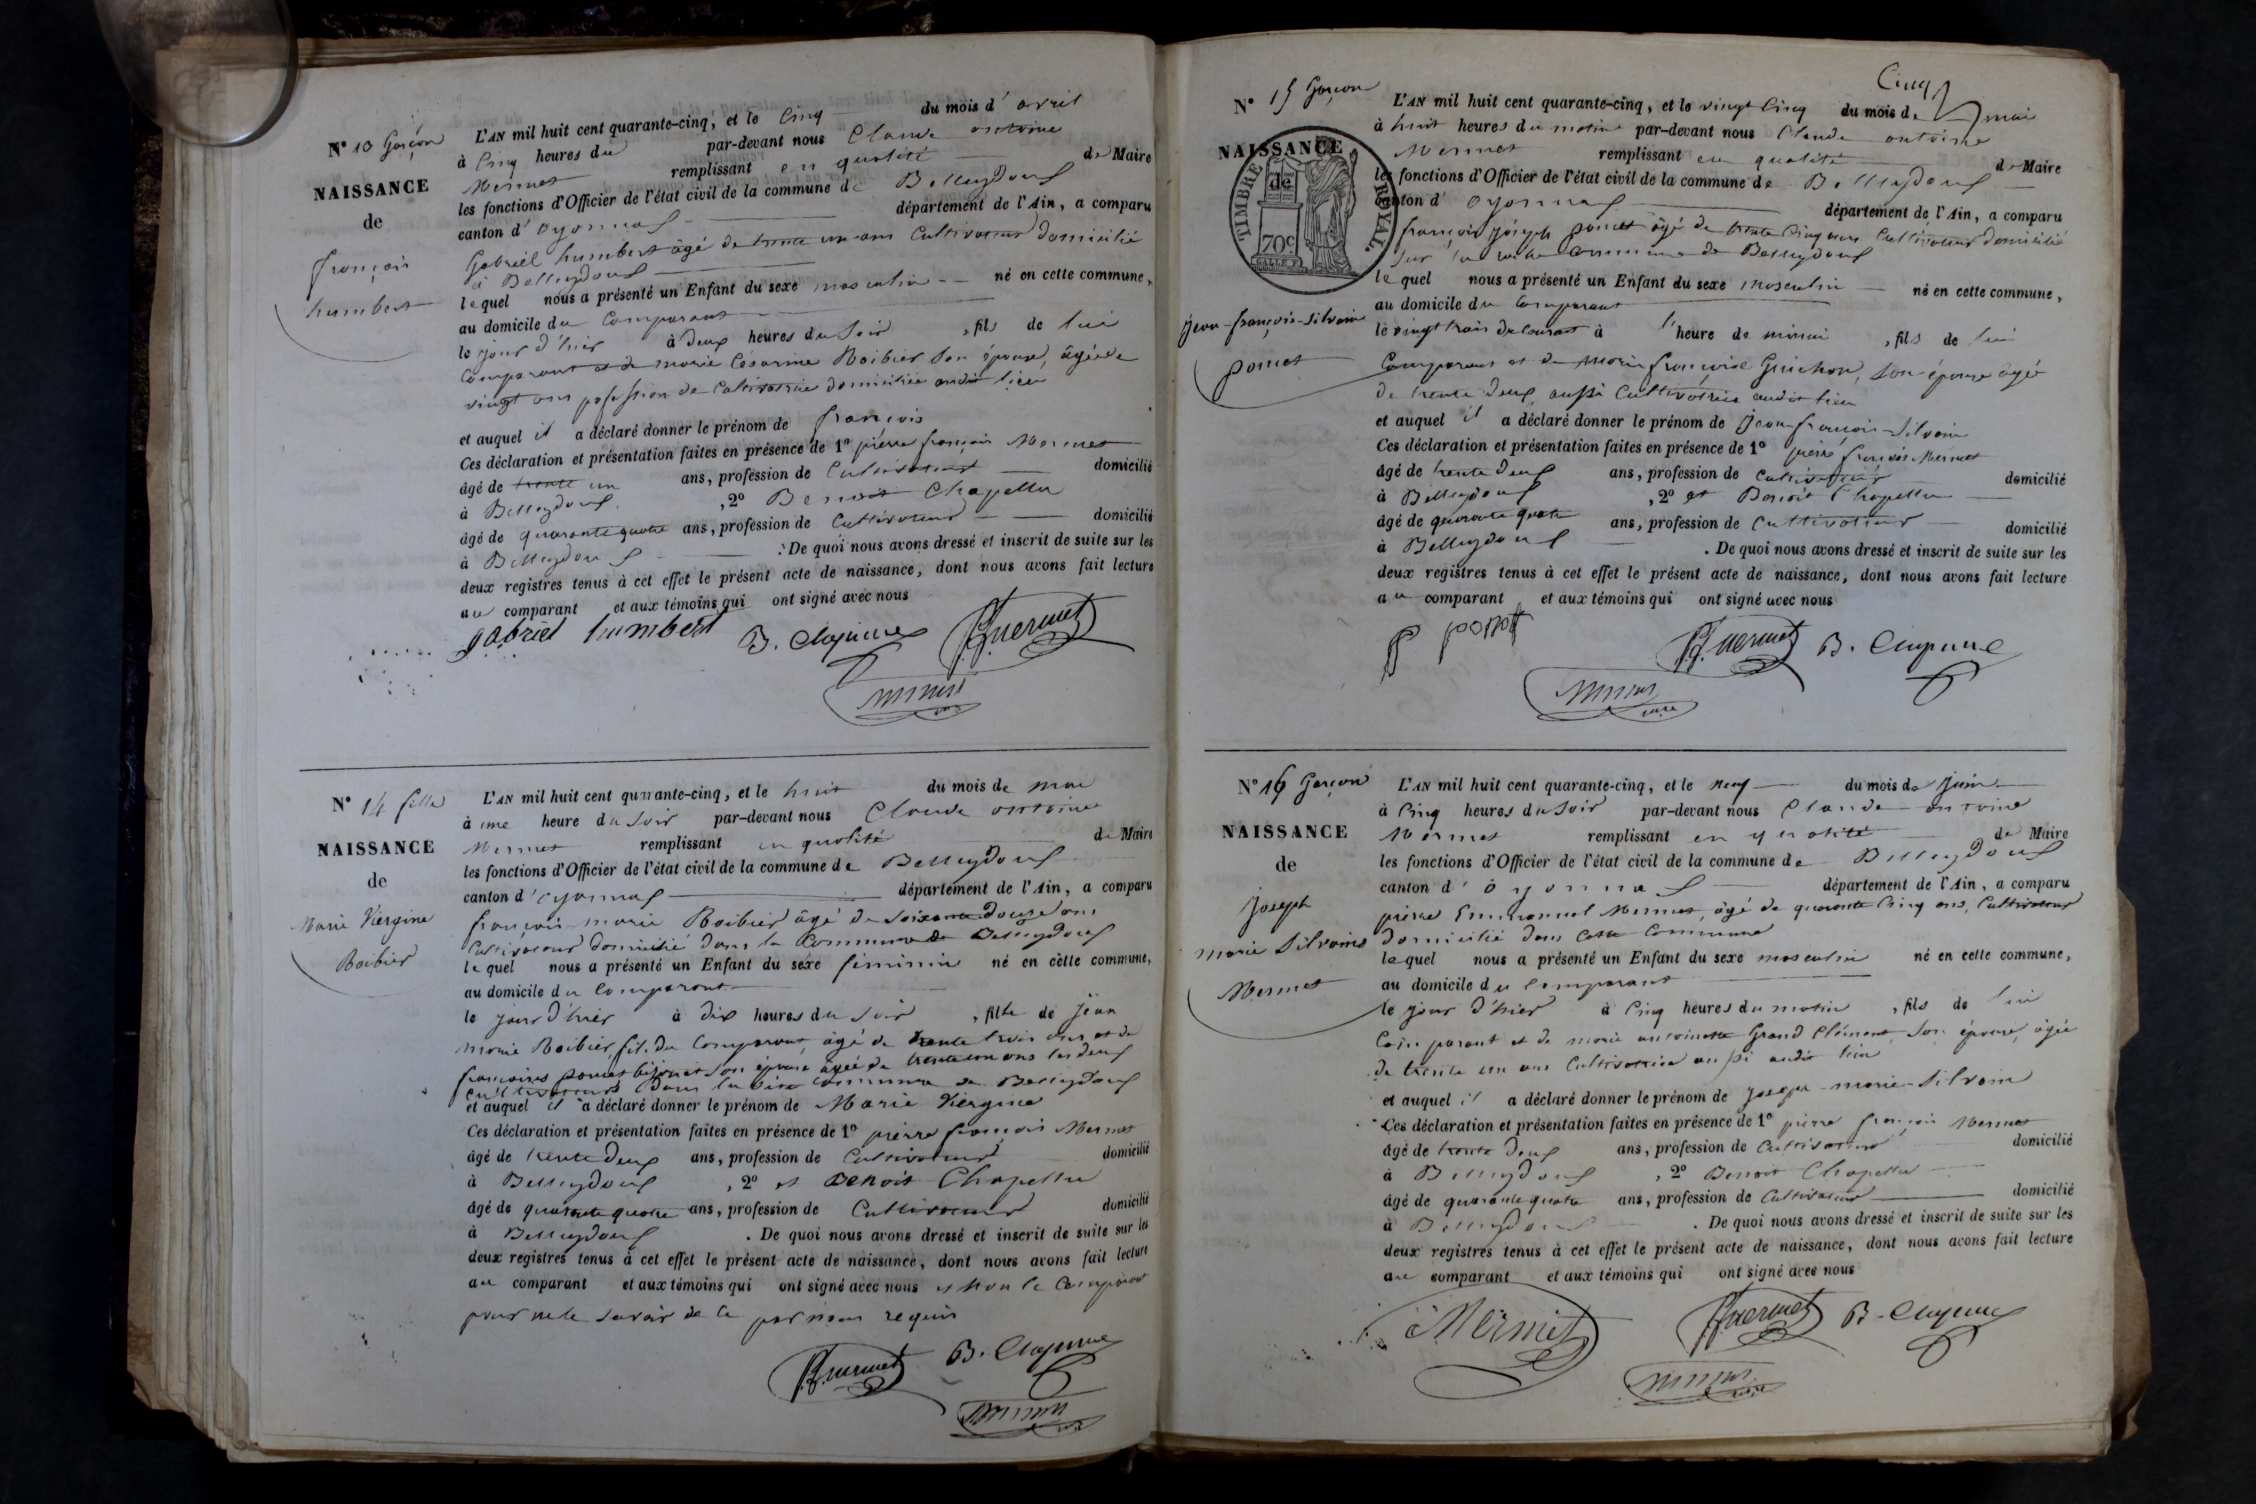 N° 13 Garçon
NAISSANCE
de
françois
humbert
L'AN mil huit cent quarante-cinq, et le Cinq du mois d' avril
à Cinq heures du par-devant nous Claude antoine
Mermet remplissant en qualité de Maire
les fonctions d'Officier de l'état civil de la commune de Belleydoux
canton d' oyonnax département de l'Ain, a comparu
Gabriel humbert âgé de trente un ans Cultivateur domicilié
à Belleydoux
lequel nous a présenté un Enfant du sexe masculin né en cette commune,
au domicile du Comparant
le jour d'hier à deux heures du Soir, fils de lui
Comparant et de marie Césarine Boibier Son épouse, âgée de
vingt ans profession de Cultivatrice domiciliée audit lieu
et auquel il a déclaré donner le prénom de françois
Ces déclaration et présentation faites en présence de 1° pierre françois Mermet
âgé de trente un ans, profession de Cultivateur domicilié
à Belleydoux, 2° Benoit Chapellu
âgé de quarante quatre ans, profession de Cultivateur domicilié
à Belleydoux. De quoi nous avons dressé et inscrit de suite sur les
deux registres tenus à cet effet le présent acte de naissance, dont nous avons fait lecture
au comparant et aux témoins qui ont signé avec nous
gabriel humbert B. Chapellu
N° 14 fille
NAISSANCE
de
Marie Viergine
Boibier
L'AN mil huit cent quarante-cinq, et le huit du mois de mai
à une heure du Soir par-devant nous Claude antoine
Mermet remplissant en qualité de Maire
les fonctions d'Officier de l'état civil de la commune de Belleydoux
canton d' oyonnax département de l'Ain, a comparu
françois marie Boibier âgé de soixante douze ans
Cultivateur domicilié dans la Commune de Belleydoux
lequel nous a présenté un Enfant du sexe féminin né en cette commune,
au domicile du Comparant
le jour d'hier à dix heures du Soir, fille de jean
marie Boibier, fils du Comparant, âgé de trente trois ans, et de
françoise poncet Son épouse âgée de trente un ans les deux
Cultivateurs dans la dite Commune de Belleydoux
et auquel il a déclaré donner le prénom de Marie Viergine
Ces déclaration et présentation faites en présence de 1° pierre françois Mermet
âgé de trente deux ans, profession de Cultivateur domicilié
à Belleydoux, 2° et Benoit Chapellu
âgé de quarante quatre ans, profession de Cultivateur domicilié
à Belleydoux. De quoi nous avons dressé et inscrit de suite sur les
deux registres tenus à cet effet le présent acte de naissance, dont nous avons fait lecture
au comparant et aux témoins qui ont signé avec nous et non le Comparant
pour ne le savoir de ce par nous requis
B. Chapellu
Cinq
N° 15 Garçon
NAISSANCE
de
TIMBRE ROYAL
70c
jean-françois-Silvain
poncet
L'AN mil huit cent quarante-cinq, et le vingt Cinq du mois de mai
à huit heures du matin par-devant nous Claude antoine
Mermet remplissant en qualité de Maire
les fonctions d'Officier de l'état civil de la commune de Belleydoux
canton d' oyonnax département de l'Ain, a comparu
françois joseph poncet âgé de trente Cinq ans Cultivateur domicilié
sur la Commune de Belleydoux
lequel nous a présenté un Enfant du sexe masculin né en cette commune,
au domicile du Comparant
le vingt trois du Courant à l'heure de minuit, fils de lui
Comparant et de marie françoise Guichon, Son épouse âgée
de trente deux, aussi Cultivatrice audit lieu
et auquel il a déclaré donner le prénom de jean françois-Silvain
Ces déclaration et présentation faites en présence de 1° pierre françois Mermet
âgé de trente deux ans, profession de Cultivateur domicilié
à Belleydoux, 2° et Benoit Chapellu
âgé de quarante quatre ans, profession de Cultivateur domicilié
à Belleydoux. De quoi nous avons dressé et inscrit de suite sur les
deux registres tenus à cet effet le présent acte de naissance, dont nous avons fait lecture
au comparant et aux témoins qui ont signé avec nous
B. Chapellu
N° 16 Garçon
NAISSANCE
de
joseph
marie Silvain
Mermet
L'AN mil huit cent quarante-cinq, et le neuf du mois de juin
à Cinq heures du Soir par-devant nous Claude antoine
Mermet remplissant en qualité de Maire
les fonctions d'Officier de l'état civil de la commune de Belleydoux
canton d' oyonnax département de l'Ain, a comparu
pierre Emmanuel Mermet, âgé de quarante Cinq ans, Cultivateur
domicilié dans cette Commune
lequel nous a présenté un Enfant du sexe masculin né en cette commune,
au domicile du Comparant
le jour d'hier à Cinq heures du matin, fils de lui
Comparant et de marie antoinette Grand Clément, Son épouse, âgée
de trente un ans Cultivatrice aussi audit lieu
et auquel il a déclaré donner le prénom de joseph-marie-Silvain
Ces déclaration et présentation faites en présence de 1° pierre françois Mermet
âgé de trente deux ans, profession de Cultivateur domicilié
à Belleydoux, 2° Benoit Chapellu
âgé de quarante quatre ans, profession de Cultivateur domicilié
à Belleydoux. De quoi nous avons dressé et inscrit de suite sur les
deux registres tenus à cet effet le présent acte de naissance, dont nous avons fait lecture
au comparant et aux témoins qui ont signé avec nous
Mermet B. Chapellu